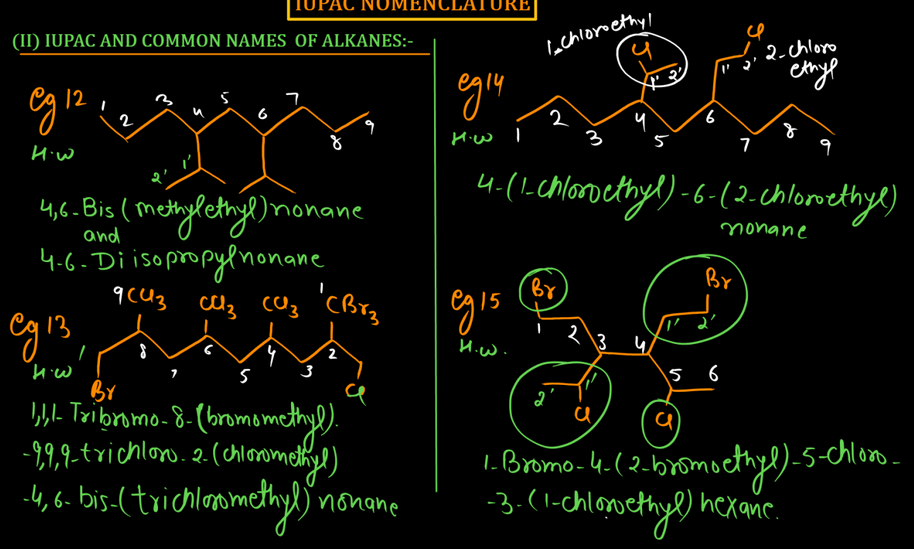 IUPAC NOMENCLATURE
(II) IUPAC AND COMMON NAMES OF ALKANES:-
eg 12
H.w
1 2 3 4 5 6 7 8 9
1' 2'
4,6-Bis(methylethyl)nonane
and
4-6-Diisopropylnonane
eg 13
H.w
9 CCl3 CCl3 CCl3 1 CBr3
8 7 6 5 4 3 2
Br Cl
1,1,1-Tribromo-8-(bromomethyl).
-9,9,9-trichloro-2-(chloromethyl)
-4,6-bis-(trichloromethyl)nonane
eg 14
H.w
1-chloroethyl
Cl 1' 2'
Cl 1' 2' 2-chloro
ethyl
1 2 3 4 5 6 7 8 9
4-(1-chloroethyl)-6-(2-chloroethyl)
nonane
eg 15
H.w.
Br Br
1 2 3 4 1' 2'
5 6
2' 1'
Cl Cl
1-Bromo-4-(2-bromoethyl)-5-chloro-
-3-(1-chloroethyl)hexane.